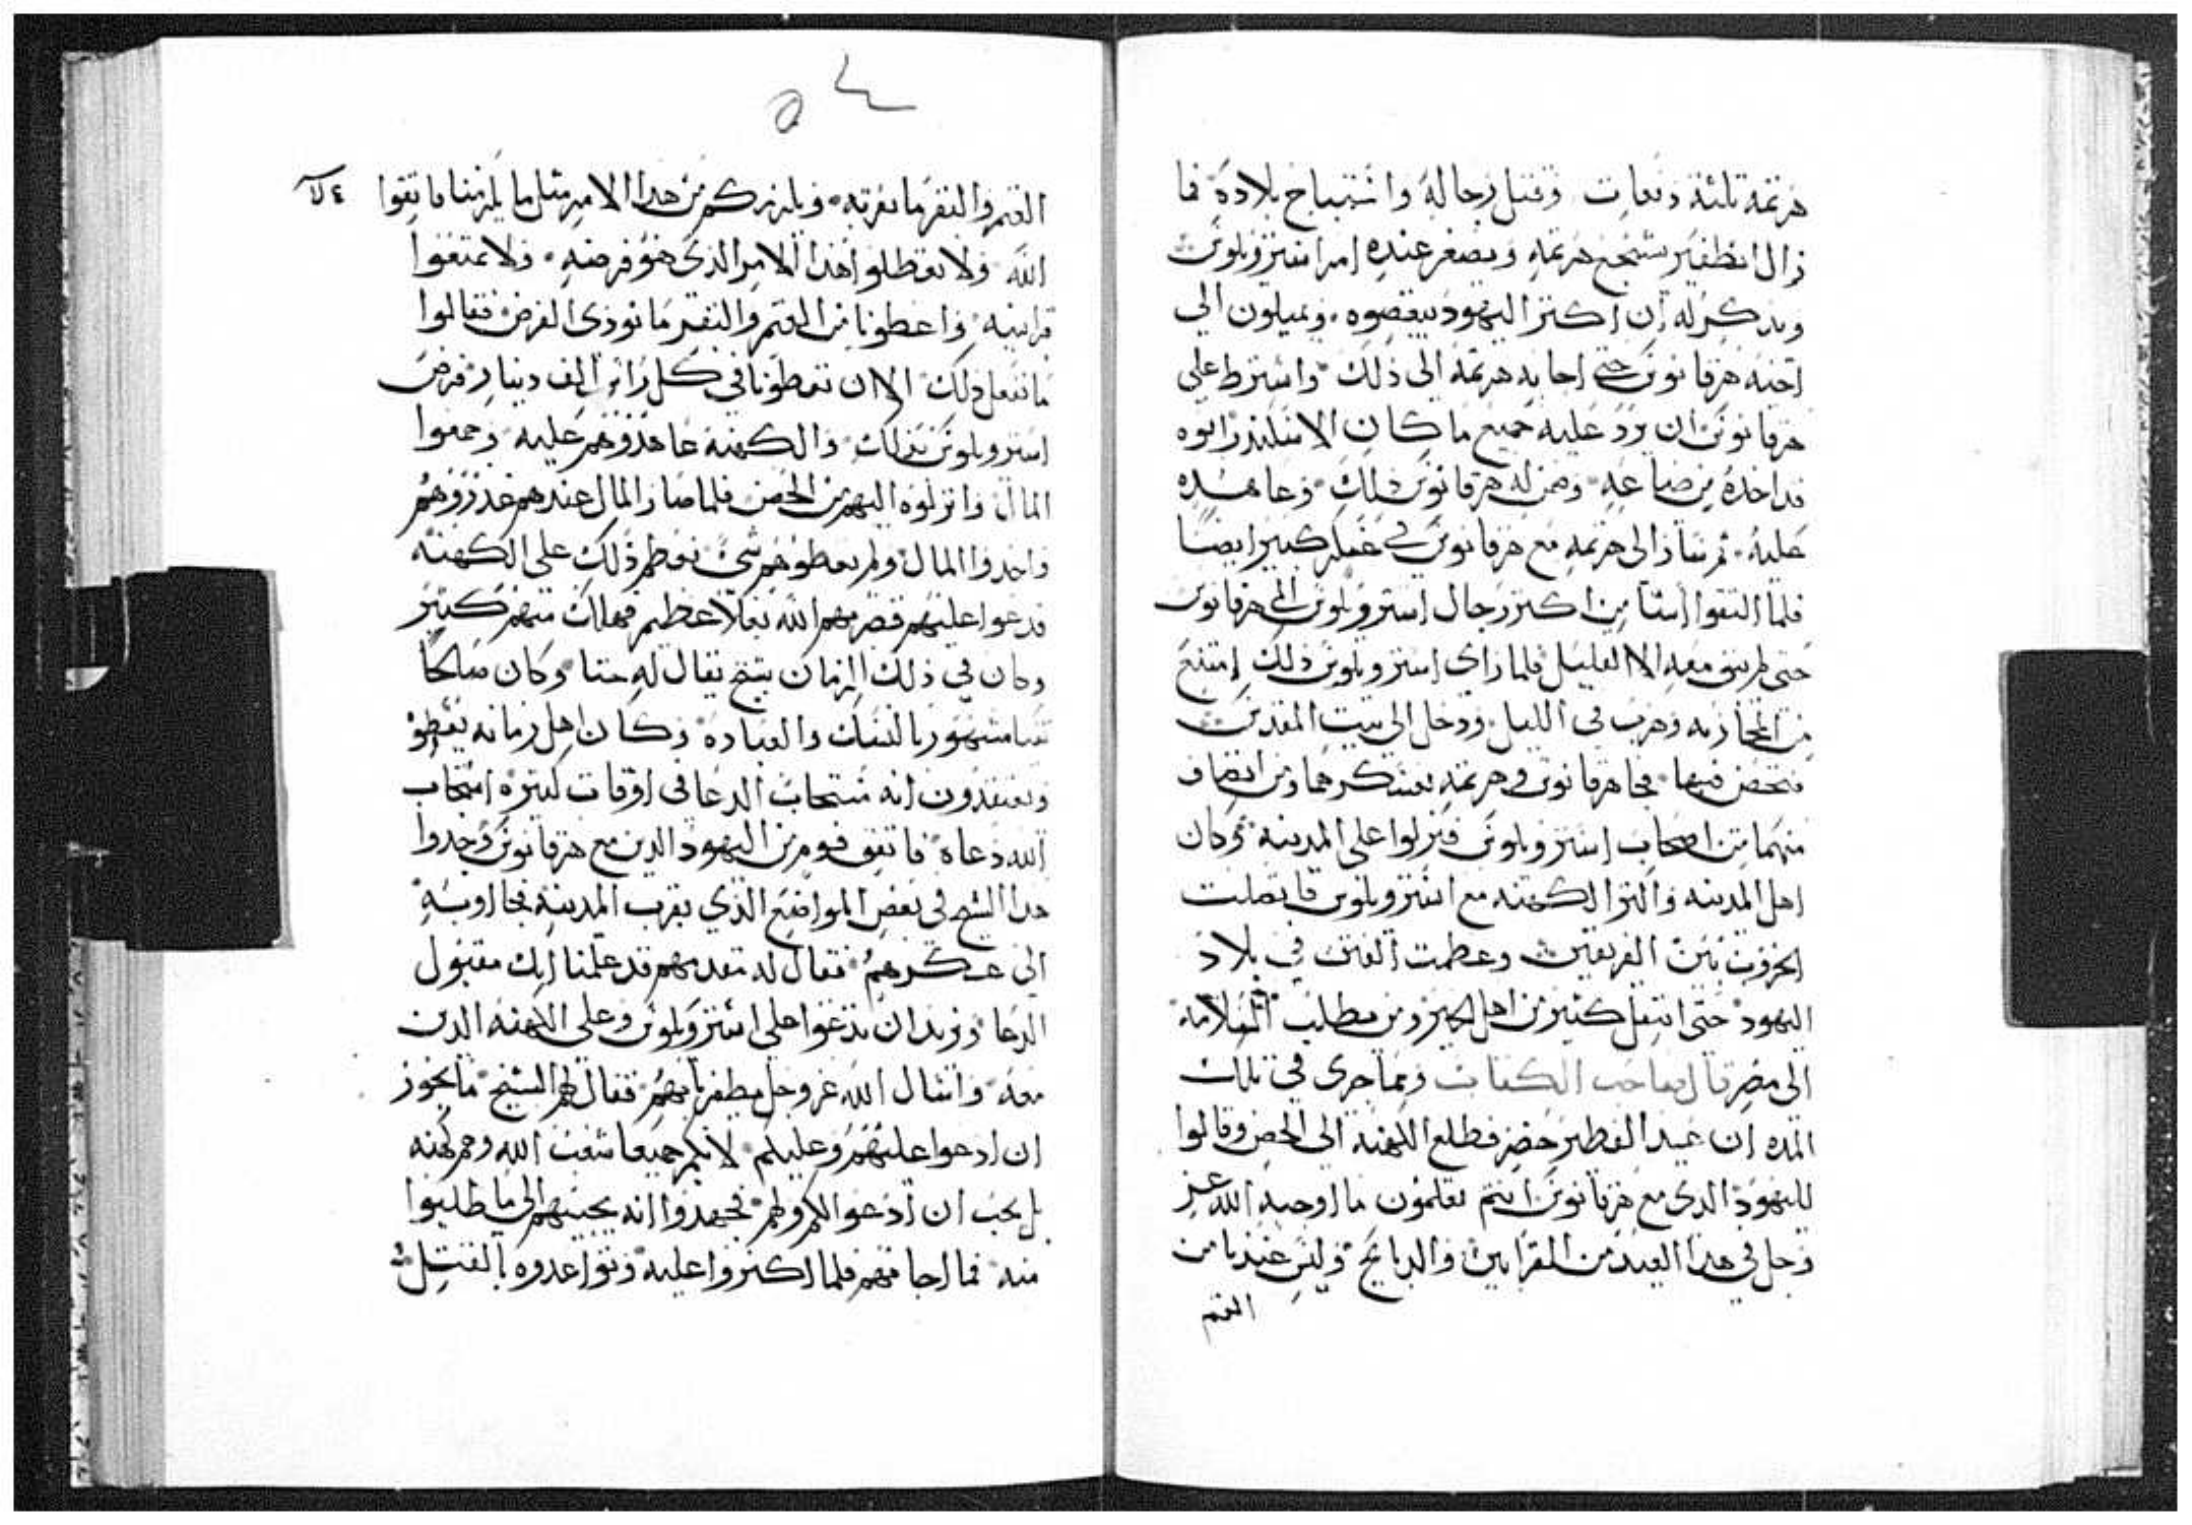 هرتمة ثلثة دفعات وقتل رجاله واستباح بلاده فما
زال انطفير يشجع هرتمه ويصغر عنده امر استروبلوس
ويذكر له ان اكثر اليهود يبغضوه ويميلون الي
اخيه هرقانوس حتى اجابه هرتمة الى ذلك واشترط على
هرقانوس ان يرد عليه جميع ما كان الاسكندر ابوه
قد اخذه من ضياعه وضمن له هرقانوس ذلك وعاهده
عليه ثم سار الى هرتمه مع هرقانوس في عسكر كبير ايضا
فلما التقوا استامن اكثر رجال استروبلوس الى هرقانوس
حتى لم يبق معه الا القليل فلما راى استروبلوس ذلك امتنع
من المحاربه وهرب في الليل ودخل الى بيت المقدس
فتحصن فيها فجا هرقانوس وهرتمه بعسكرهما ومن انضاف
منهما من اصحاب استروبلوس فنزلوا على المدينه وكان
اهل المدينه واكثر الكهنه مع استروبلوس فاتصلت
الحروب بين الفريقين وعظمت الفتن في بلاد
اليهود حتى انتقل كثير من اهل الخير ومن يطلب السلامه
الى مصر قال صاحب الكتاب ومما جرى في تلك
المده ان عيد الفطير حضر فطلع الكهنه الى الحصن وقالوا
لليهود الذى مع هرقانوس انتم تعلمون ما اوجبه الله عز
وجل في هذا العيد من القرابين والذبايح وليس عندنا من
الغنم
٥٤
الغنم والبقر ما نقربه ويلزمكم من هذا الامر مثل ما يلزمنا فاتقوا
الله ولا تعطلوا هذا الامر الذى هو فرضه ولا تمنعوا
قرابينه واعطونا من الغنم والبقر ما نودى الفرض فقالوا
ما نفعل ذلك الا ان تعطونا في كل راس الف دينار فرضى
استروبلوس بذلك والكهنه عاهدوهم عليه وجمعوا
المال وانزلوه اليهم من الحصن فلما صار المال عندهم غدروهم
واخذوا المال ولم يعطوهم شى فعظم ذلك على الكهنه
فدعوا عليهم فضربهم الله ببلا عظيم فهلك منهم كثير
وكان في ذلك الزمان شيخ يقال له حنا وكان صالحا
تقيا مشهور بالنسك والعباده وكان اهل زمانه يعظموه
ويعتقدون انه مستجاب الدعا في اوقات كثيره استجاب
الله دعاه فاتفق قوم من اليهود الذين مع هرقانوس وجدوا
هذا الشيخ في بعض المواضع الذي بقرب المدينه فجاوا به
الى عسكرهم فقال له مقدمهم قد علمنا انك مقبول
الدعا ونريد ان تدعوا على استروبلوس وعلى الكهنه الذين
معه واسال الله عز وجل يظفرنا بهم فقال لهم الشيخ ما يجوز
ان ادعوا عليهم وعليكم لانكم جميعا شعب الله وهم كهنه
بل يجب ان ادعوا لكم ولهم فجهدوا انه يجيبهم الى ما طلبوا
منه فما اجابهم فلما اكثروا عليه وتواعدوه بالقتل